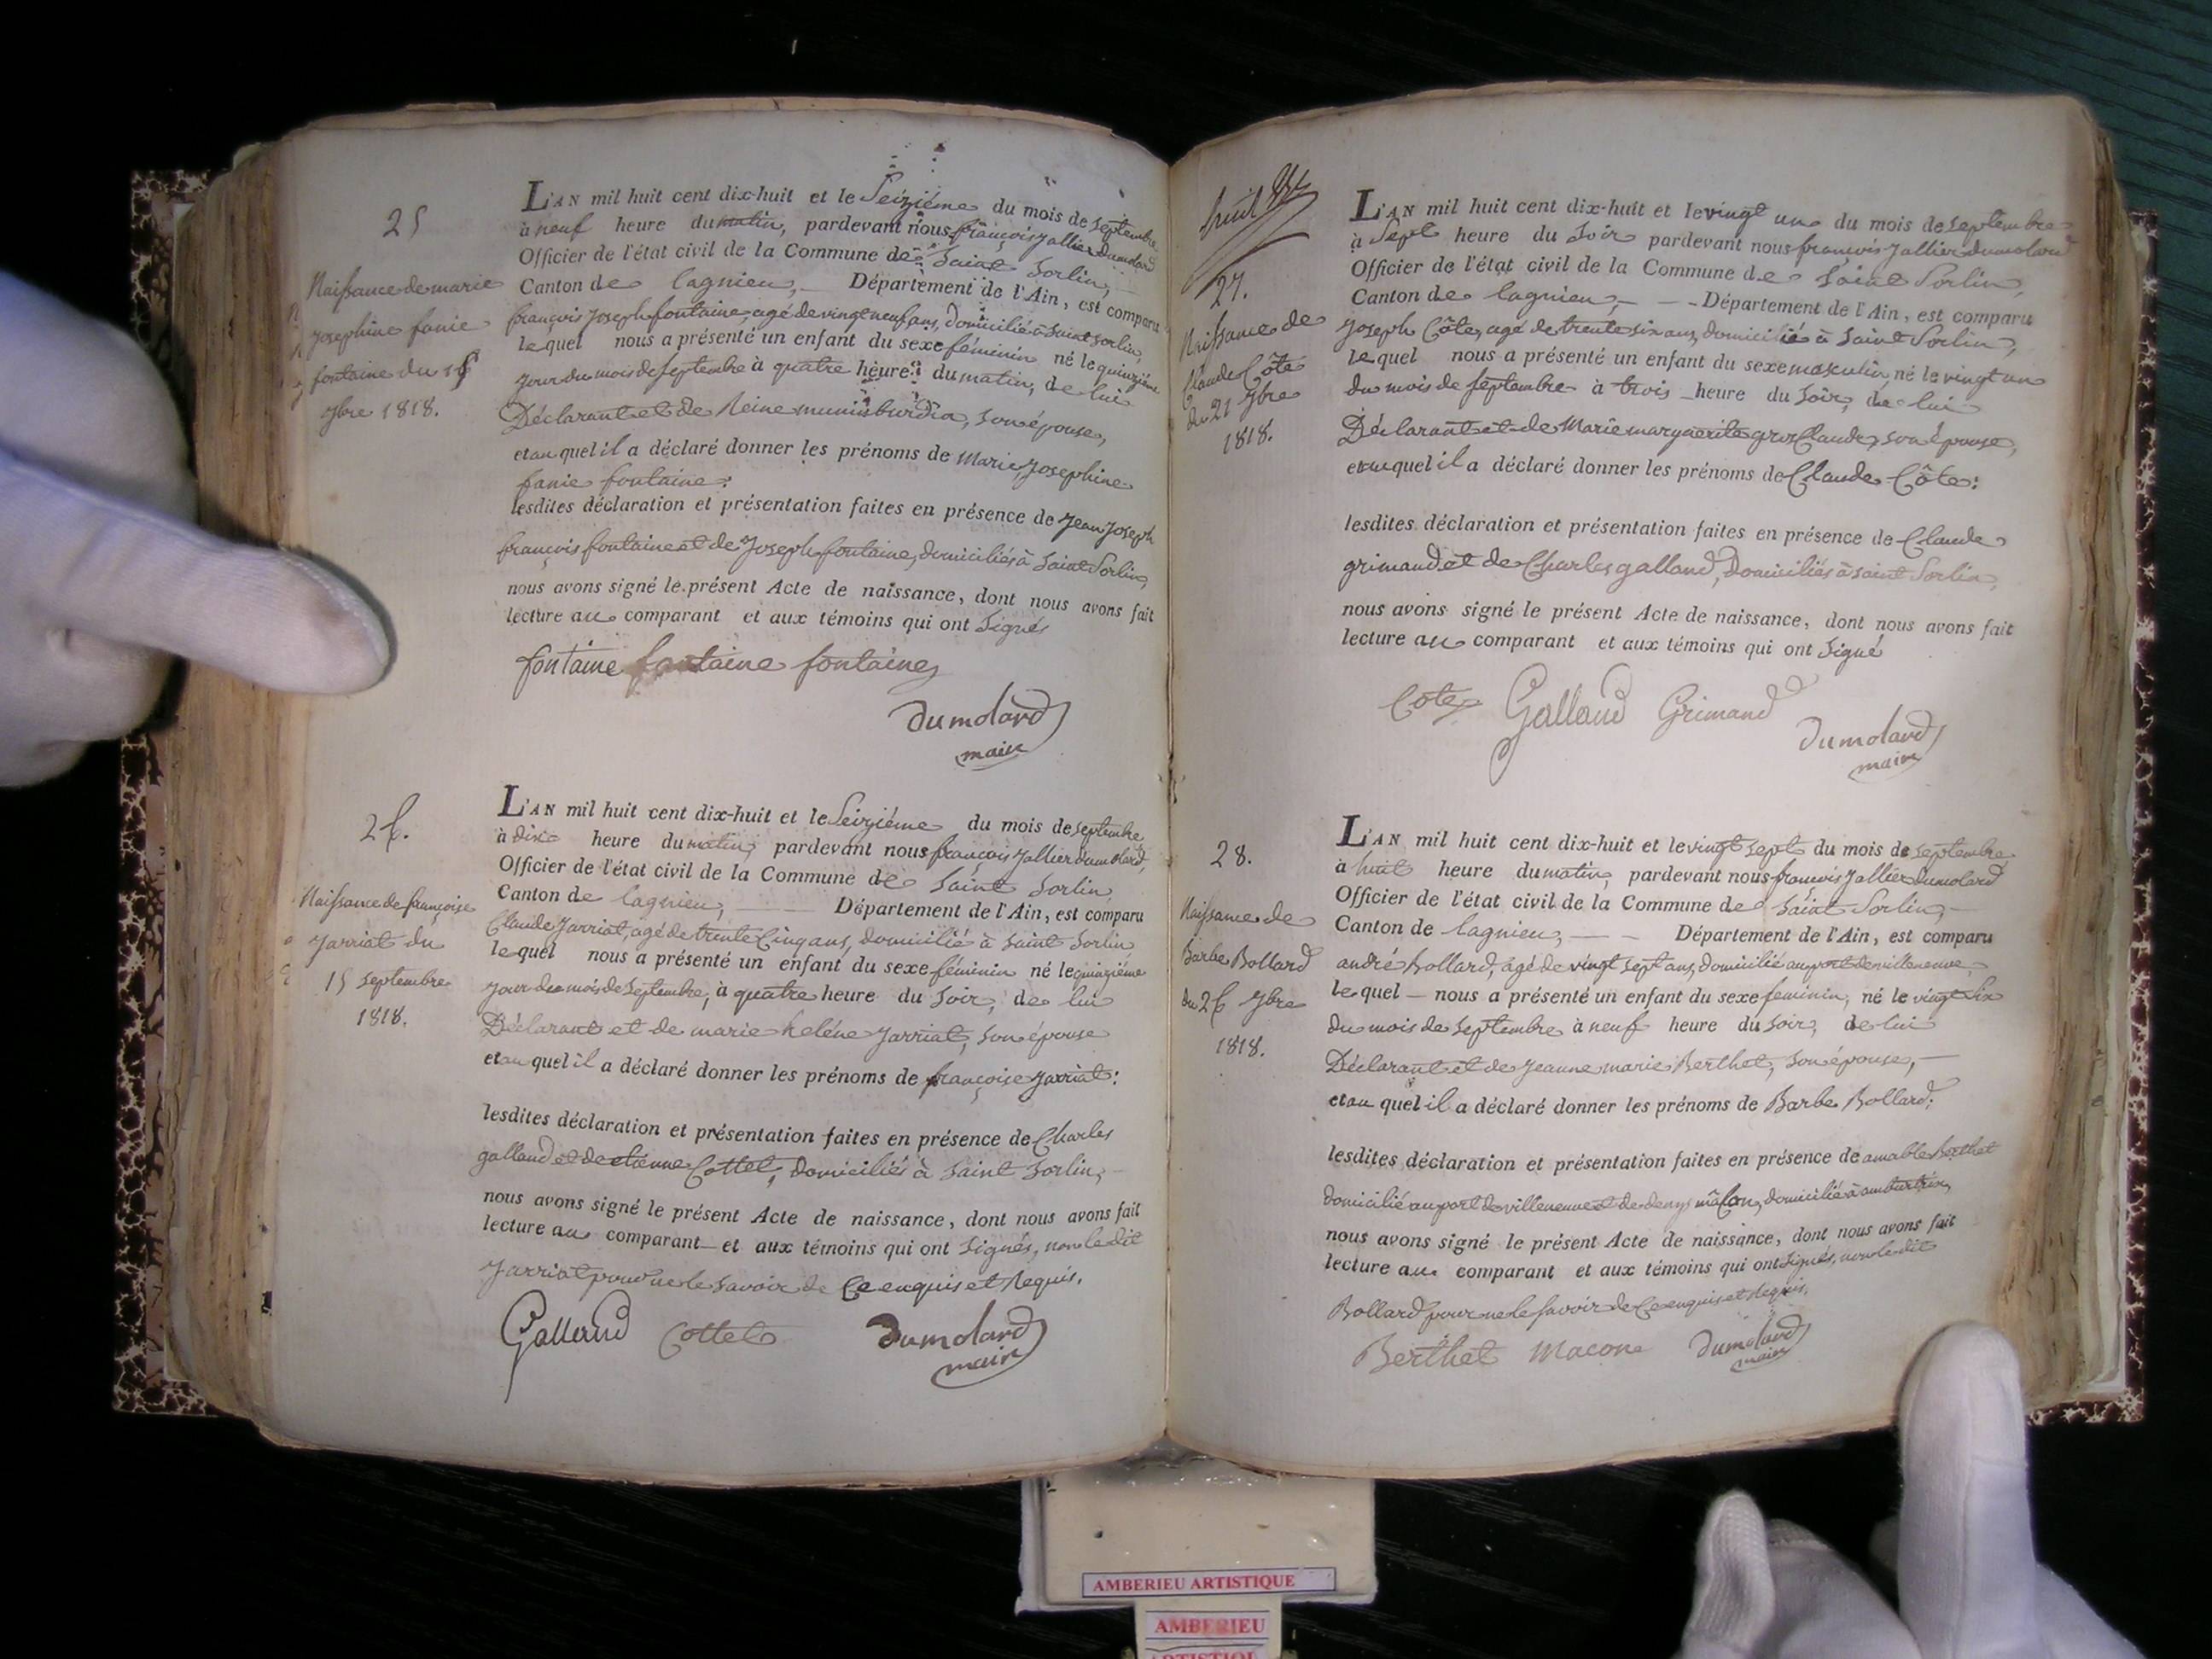 25
Naissance de marie
josephine fanie
fontaine du 15
7bre 1818.
L'AN mil huit cent dix-huit et le Seizième du mois de septembre
à neuf heure du matin, pardevant nous françois jallier Dumolard
Officier de l'état civil de la Commune de Saint Sorlin,
Canton de lagnieu, Département de l'Ain, est comparu
françois joseph fontaine, agé de vingt neuf ans, Domicilié à Saint Sorlin,
lequel nous a présenté un enfant du sexe féminin né le quinzième
jour du mois de septembre à quatre heure du matin, de lui
Déclarant et de Reine, son épouse,
et auquel il a déclaré donner les prénoms de Marie, Josephine
fanie fontaine:
lesdites déclaration et présentation faites en présence de jean joseph
françois fontaine et de joseph fontaine, domiciliés à Saint Sorlin,
nous avons signé le présent Acte de naissance, dont nous avons fait
lecture au comparant et aux témoins qui ont Signés
fontaine fontaine fontaine
Dumolard
maire
26.
Naissance de françoise
Jarriat du
15 septembre
1818.
L'AN mil huit cent dix-huit et le Seizième du mois de septembre,
à dix heure du matin, pardevant nous françois jallier dumolard,
Officier de l'état civil de la Commune de Saint Sorlin,
Canton de lagnieu, Département de l'Ain, est comparu
Claude Jarriat, agé de trente Cinq ans, domicilié à Saint Sorlin
lequel nous a présenté un enfant du sexe féminin né le quinzième
jour du mois de Septembre, à quatre heure du Soir, de lui
Déclarant et de marie heléne Jarriat, son épouse
et auquel il a déclaré donner les prénoms de françoise Jarriat:
lesdites déclaration et présentation faites en présence de Charles
galland et de etienne Cottet, domiciliés à Saint Sorlin,
nous avons signé le présent Acte de naissance, dont nous avons fait
lecture au comparant et aux témoins qui ont Signés, non le dit
Jarriat pour ne le savoir de Ce enquis et Requis.
Galland Cottet Dumolard
maire
huit
27.
Naissance de
Claude Côte
du 21 7bre
1818.
L'AN mil huit cent dix-huit et le vingt un du mois de septembre
à Sept heure du Soir pardevant nous françois jallier dumolard
Officier de l'état civil de la Commune de Saint Sorlin,
Canton de lagnieu, Département de l'Ain, est comparu
Joseph Côte, agé de trente six ans, domicilié à Saint Sorlin,
lequel nous a présenté un enfant du sexe masculin, né le vingt un
du mois de septembre à trois heure du Soir, de lui
Déclarant et de Marie marguerite gros Claude, son épouse,
et auquel il a déclaré donner les prénoms de Claude Côte:
lesdites déclaration et présentation faites en présence de Claude
grimand et de Charles galland, Domiciliés à saint Sorlin,
nous avons signé le présent Acte de naissance, dont nous avons fait
lecture au comparant et aux témoins qui ont Signé
Cote Galland Grimand
Dumolard
maire
28.
Naissance de
Barbe Bollard
du 26 7bre
1818.
L'AN mil huit cent dix-huit et le vingt sept du mois de septembre,
à huit heure du matin, pardevant nous françois jallier dumolard
Officier de l'état civil de la Commune de Saint Sorlin,
Canton de lagnieu, Département de l'Ain, est comparu
andré bollard, agé de vingt sept ans, domicilié au port de villeneuve,
lequel nous a présenté un enfant du sexe feminin, né le vingt six
du mois de septembre à neuf heure du soir, de lui
Déclarant et de jeanne marie Berthet, son épouse,
et auquel il a déclaré donner les prénoms de Barbe Bollard;
lesdites déclaration et présentation faites en présence de amable Berthet
domicilié au port de villeneuve et de denys mâcon, domicilié à ambutrix,
nous avons signé le présent Acte de naissance, dont nous avons fait
lecture au comparant et aux témoins qui ont signés, non le dit
Bollard pour ne le savoir de Ce enquis et Requis.
Berthet Macone Dumolard
maire
AMBERIEU ARTISTIQUE
AMBERIEU
ARTISTIQUE